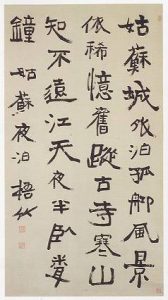 姑蘇城外泊孤舟風景
依稀憶舊蹤古寺寒山
知不遠江天夜半臥聽
鐘 姑蘇夜泊 梧竹